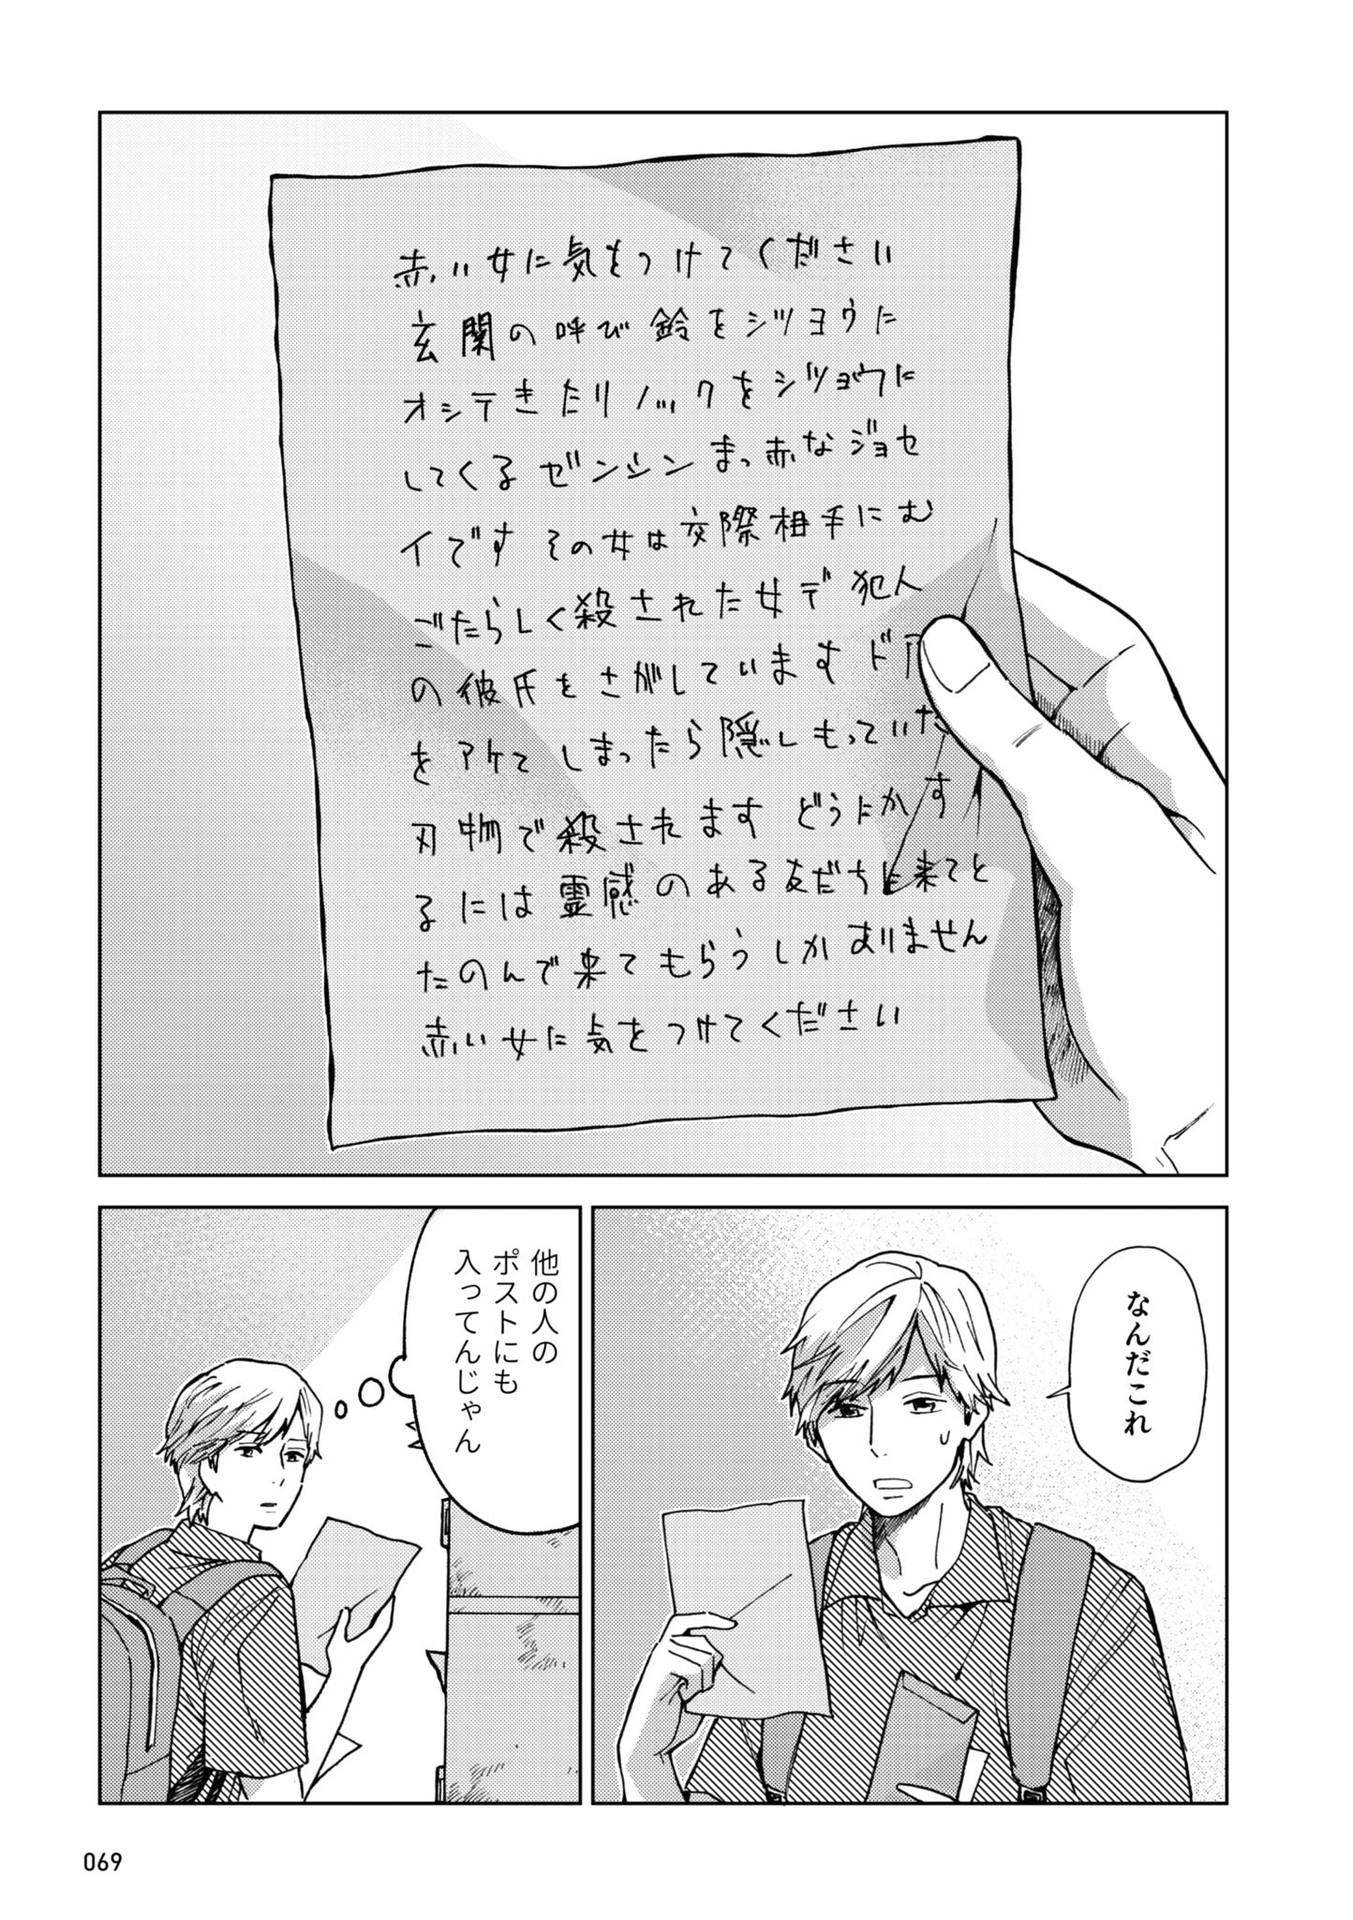 赤い女に気をつけてください
玄関の呼び鈴をシツヨウに
オシテきたりノックをシツョウに
してくるゼンシン まっ赤なジョセ
イです その女は交際相手にむ
ごたらしく殺された女デ 犯人
の彼氏をさがしています ドア
をアケてしまったら隠しもっていた
刃物で殺されます どうにかす
るには霊感のある友だちに来てと
たのんで来てもらうしかありません
赤い女に気をつけてください
なんだこれ
他の人の
ポストにも
入ってんじゃん
069